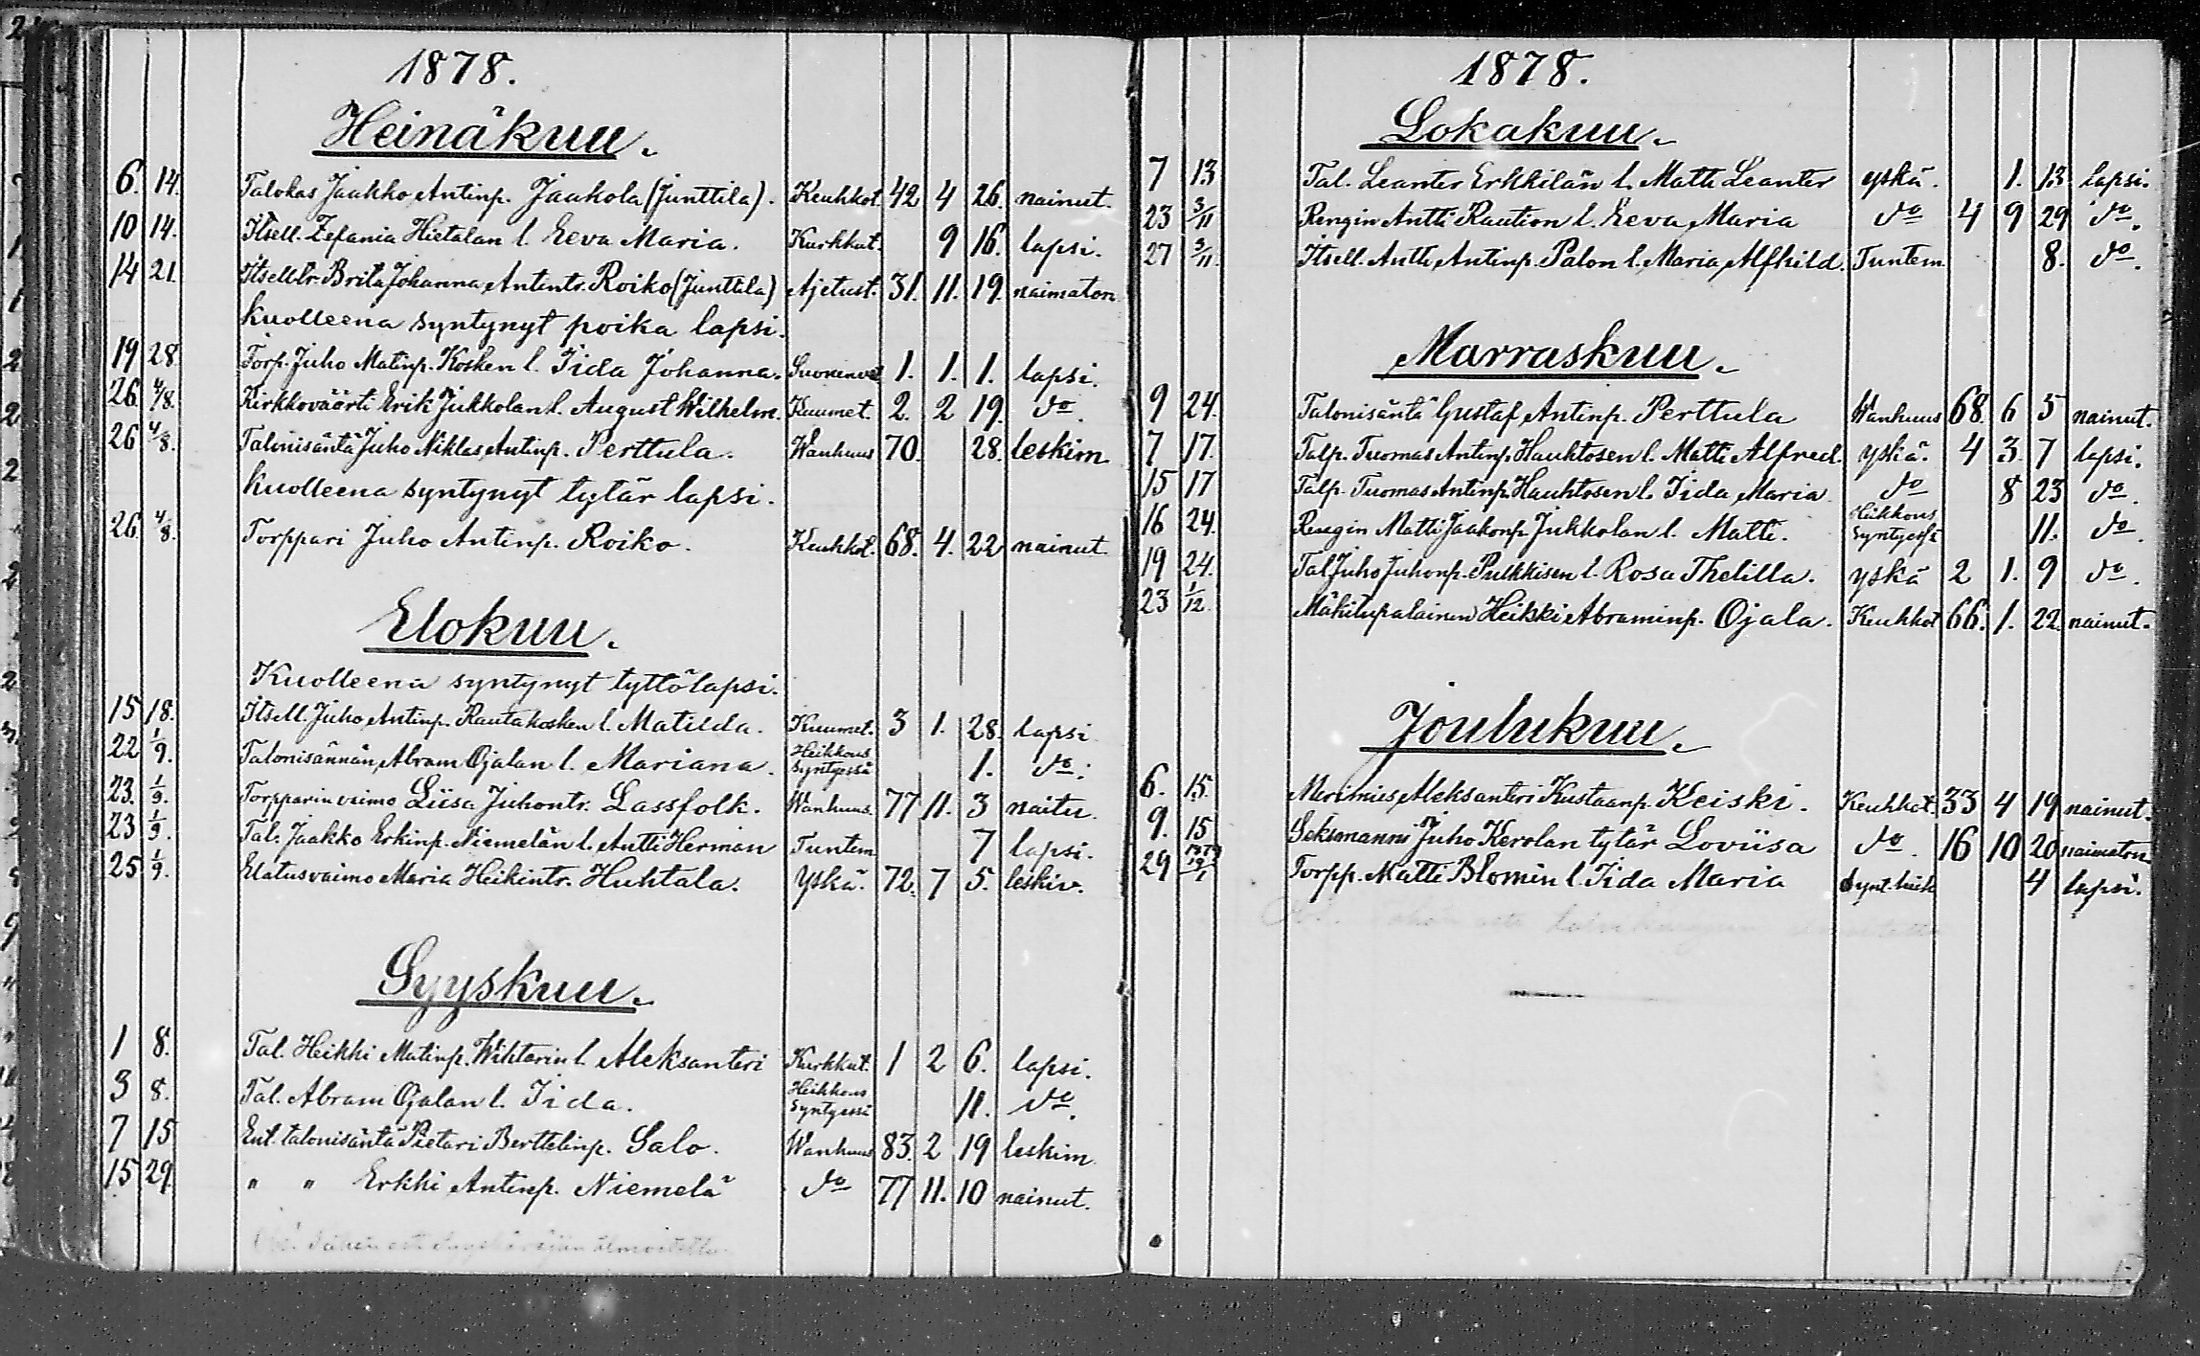 1878.
Heinäkuu.
6. 14. Talokas Jaakko Antinp. Jaakola (Junttila). Keuhkot. 42 4 26. nainut.
10 14. Itsell. Zefania Hietalan l. Eeva Maria. Kurkkut. 9 16. lapsi.
14 21. Itselltr. Brita Johanna Antintr. Roiko (Junttila) Ajetust. 31. 11. 19. naimaton
kuolleena syntynyt poika lapsi.
19 28 Torp. Juho Matinp. Kosken l. Iida Johanna. Suonenv. 1. 1. 1. lapsi.
26. 4/8. Kirkkoväärti Erik Jukkolan l. August Wilhelm. Kuumet. 2. 2 19. do.
26 4/8. Talonisäntä Juho Niklas Antinp. Perttula. Wanhuus 70. 28. leskim.
kuolleena syntynyt tytär lapsi.
26. 4/8. Torppari Juho Antinp. Roiko. Keuhkot. 68. 4. 22 nainut.
Elokuu.
Kuolleena syntynyt tyttölapsi.
15 18. Itsell. Juho Antinp. Rautakosken l. Matilda. Kuumet. 3 1. 28. lapsi
22 1/9. Talonisännän Abram Ojalan l. Mariana. Heikkous syntyessä 1. do.
23. 1/9. Torpparin vaimo Liisa Juhontr. Lassfolk. Wanhuus. 77 11. 3 naitu.
23 1/9. Tal. Jaakko Erkinp. Niemelän l. Antti Herman Tuntem 7 lapsi.
25 1/9. Elatusvaimo Maria Heikintr. Huhtala. Yskä. 72. 7 5. leskiv.
Syyskuu.
1 8. Tal. Heikki Matinp. Wihterin l. Aleksanteri Kurkkut. 1 2 6. lapsi.
3 8. Tal. Abram Ojalan l. Iida. Heikkous syntyessä 11. do.
7 15 Ent. talonisäntä Pietari Berttelinp. Salo. Wanhuus 83. 2 19 leskim.
15 29. " " Erkki Antinp. Niemelä do 77 11. 10 nainut.
1878.
Lokakuu.
7 13 Tal. Leanter Erkkilän l. Matti Leanter yskä. 1. 13 lapsi.
23 3/11 Rengin Antti Raution l. Eeva Maria do 4 9 29 do.
27 3/11. Itsell. Antti Antinp. Palon l. Maria Alfhild. Tuntem. 8. do.
Marraskuu.
9 24. Talonisäntä Gustaf Antinp. Perttula Wanhuus 68. 6 5 nainut.
7 17. Talp. Tuomas Antinp. Hauhtosen l. Matti Alfred. yskä. 4 3. 7 lapsi.
15 17 Talp. Tuomas Antinp. Hauhtosen l. Iida Maria do 8 23 do.
16 24. Rengin Matti Jaakonp. Jukkolan l. Matti. Heikkous syntyess. 11. do.
19 24. Tal Juho Juhonp. Pulkkisen l. Rosa Thelilla. yskä 2 1. 9 do.
23 1/12. Mäkitupalainen Heikki Abraminp. Ojala. Keuhkot 66. 1. 22. nainut.
Joulukuu.
6. 15. Merimies Aleksanteri Kustaanp. Keiski. Keuhkot. 33 4 19 nainut.
9. 15 Seksmanni Juho Kerolan tytär Loviisa do. 16 10 20 naimaton
29 1879 19/1 Torpp. Matti Blomin l. Iida Maria Synt. heik 4 lapsi.